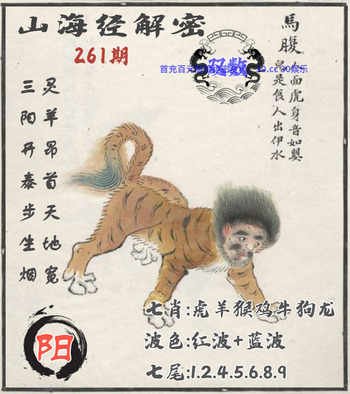 山海经解密
261期
双数
首充百元
馬腹
人面虎身音如嬰
兒是食人出伊水
灵羊昂首天地宽
三阳开泰步生烟
阳
七肖:虎羊猴鸡牛狗龙
波色:红波+蓝波
七尾:1.2.4.5.6.8.9